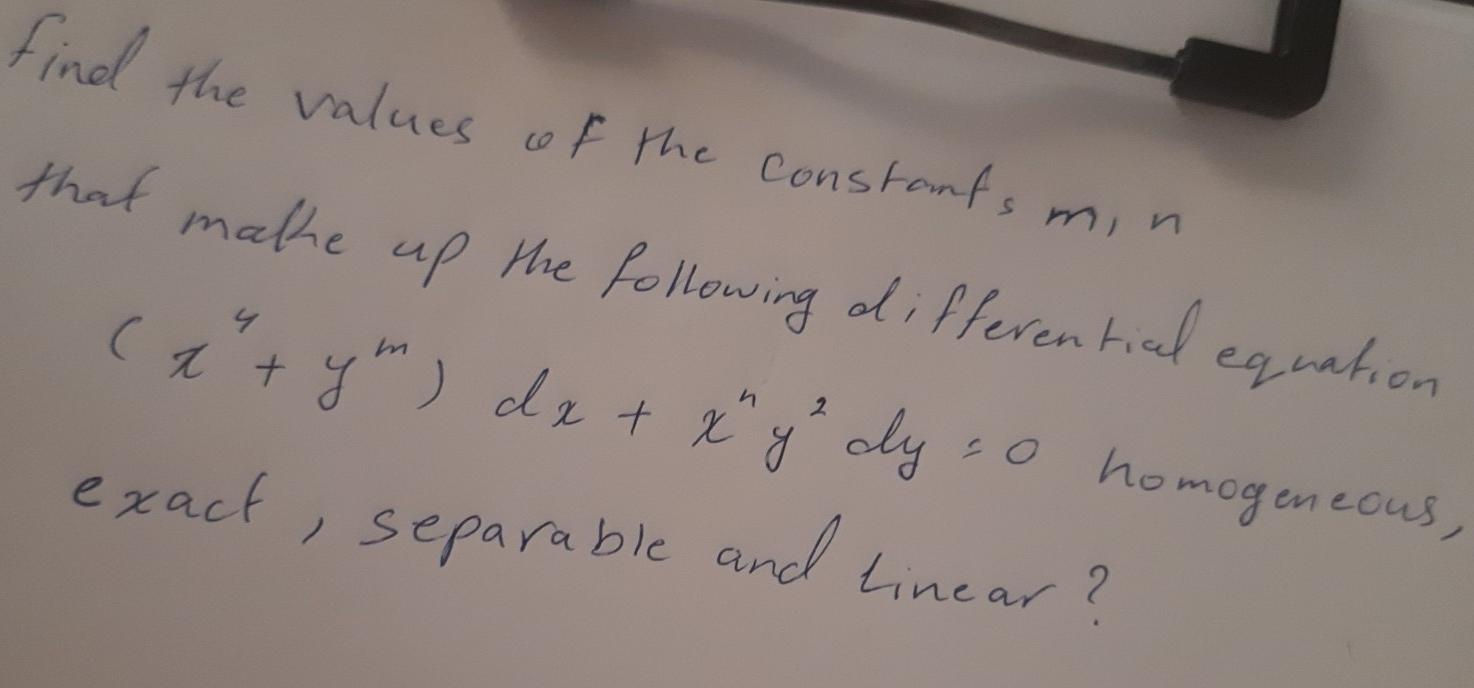 find the values of the constants m, n
that mathe up the following differential equation
(x⁴ + yᵐ) dx + xⁿ y² dy = 0 homogeneous,
exact, separable and Linear?